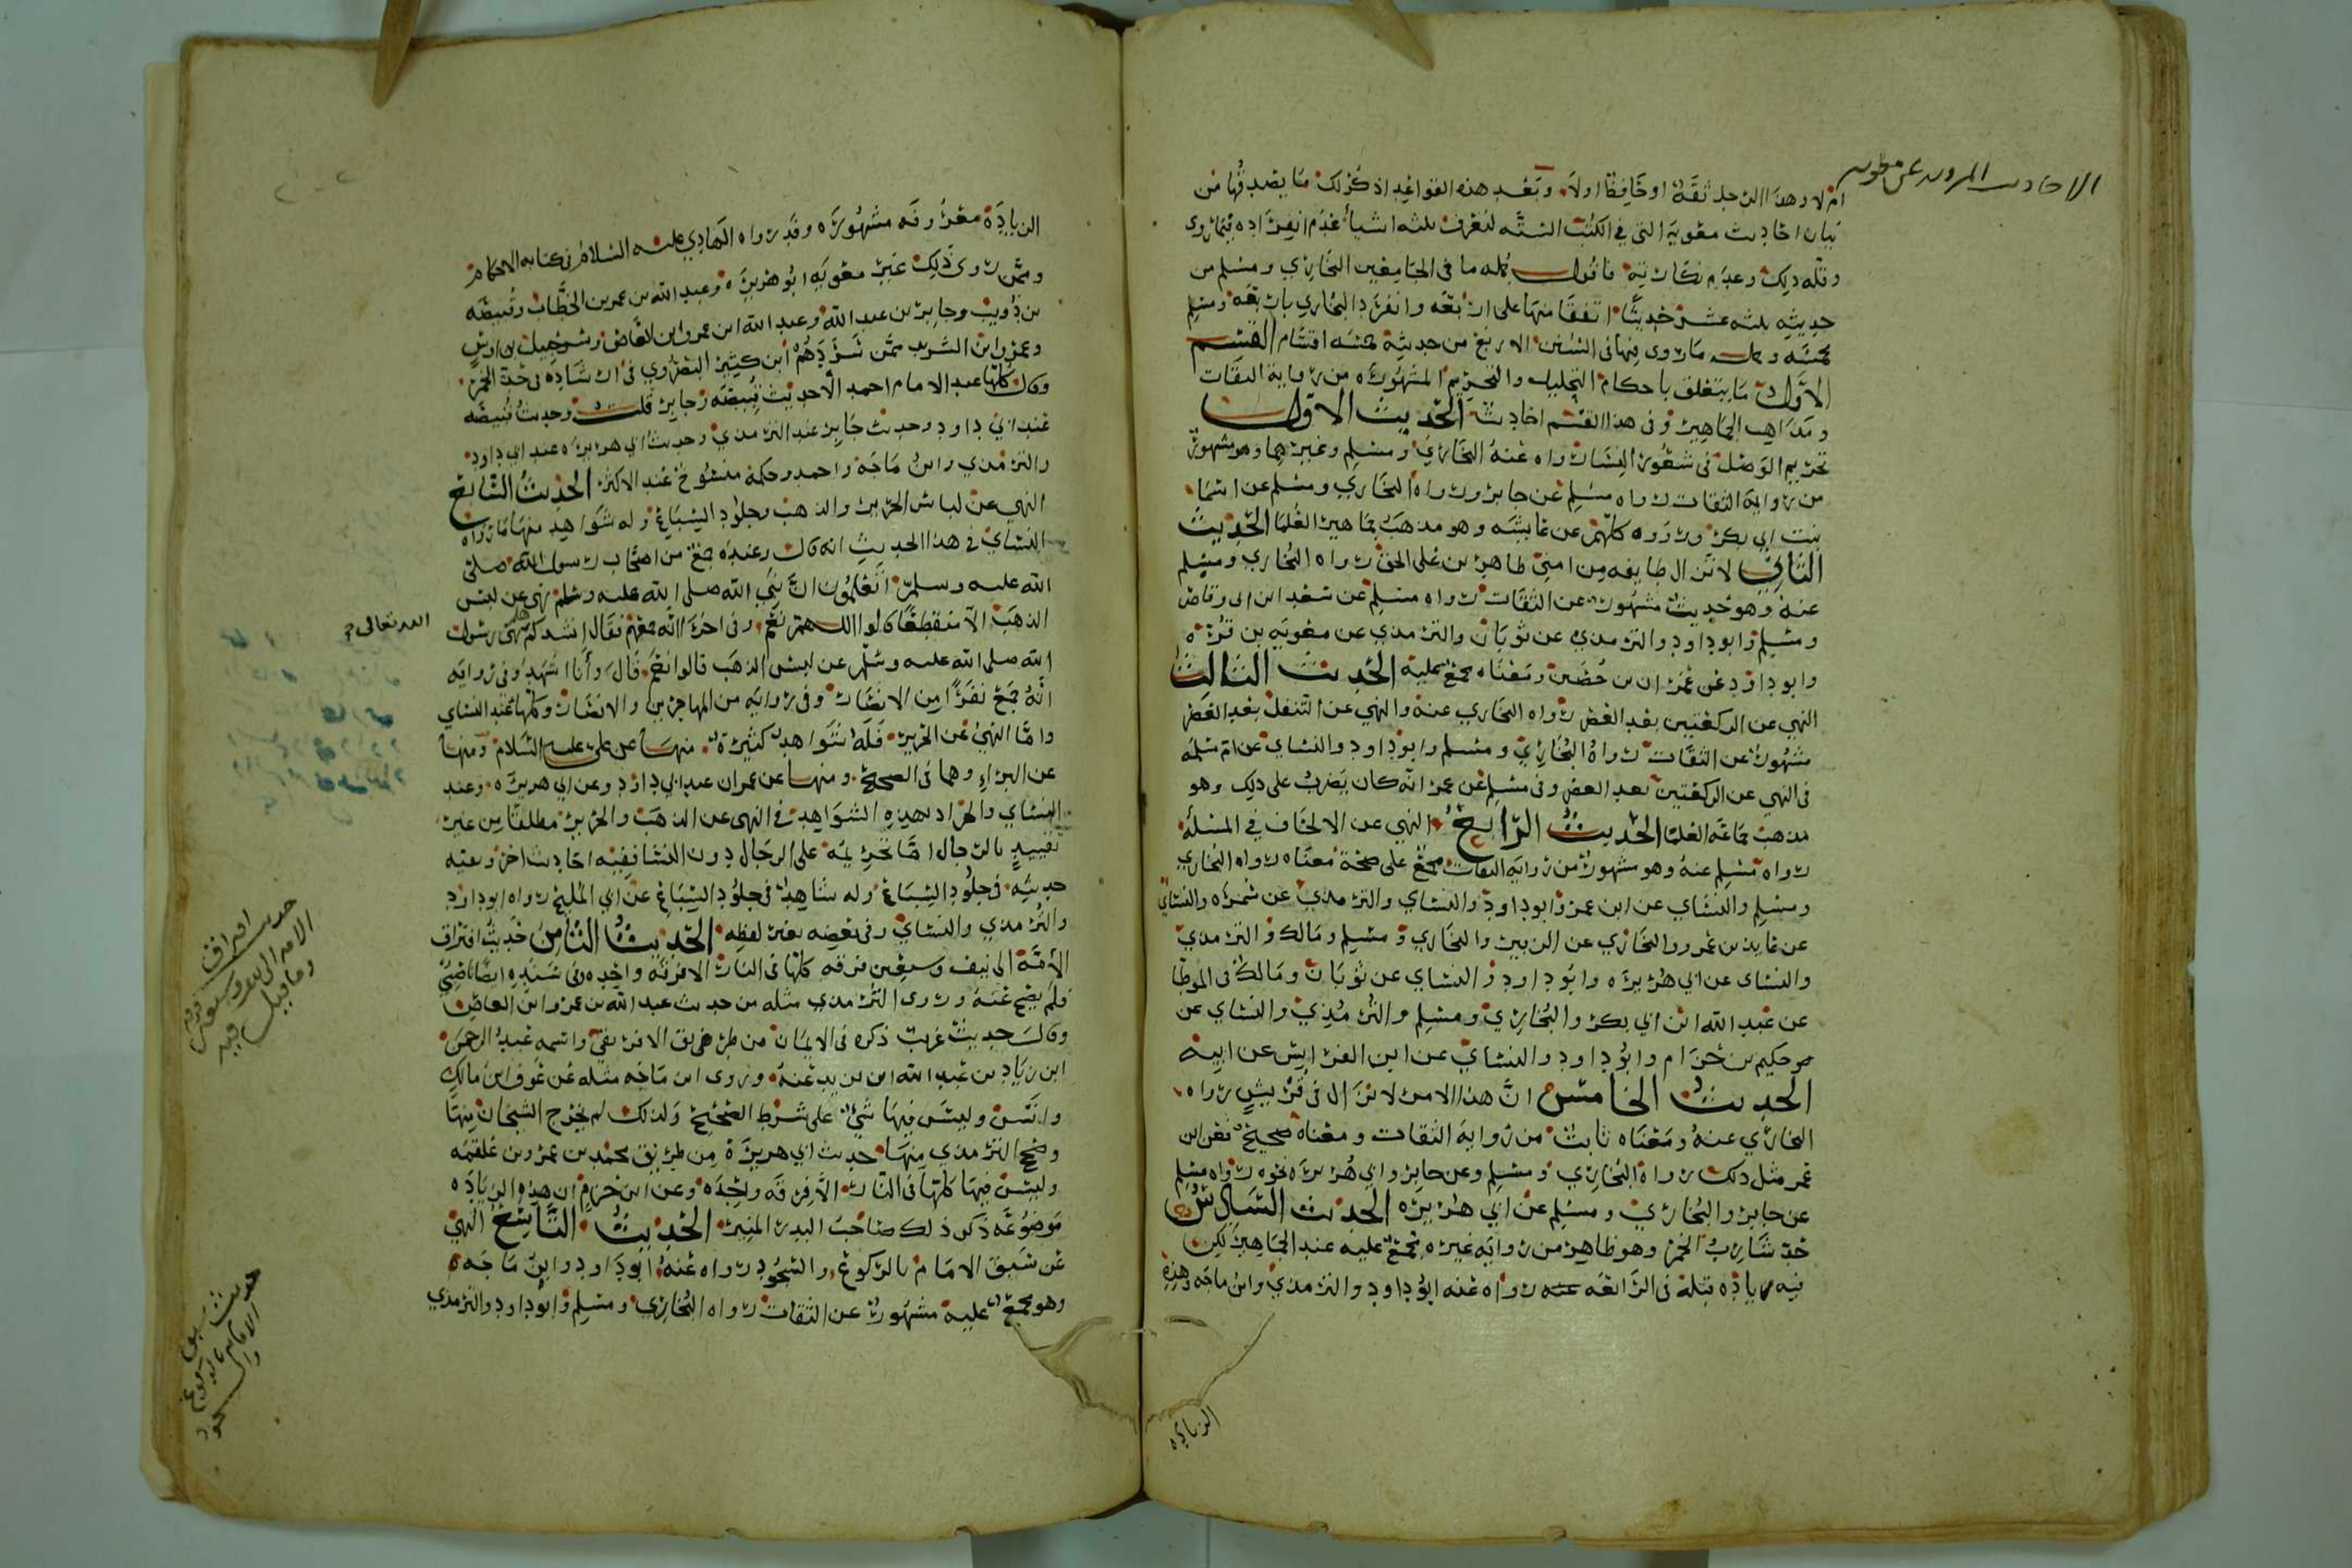 الاحاديث المروية عن معاوية
ام لا وهذا الرجل ثقة او حافظا اولا وبعد هذه القواعد اذكر لك ما يصدقها من
بيان احاديث معوية التي في الكتب الستة لتعرف ثلثه اشيا عدم انفراده فيما روى
وقله ذلك وعدم نكارته فاقول جمله ما في الجامعين البخاري ومسلم من
حديثه ثلثه عشر حديثا اتفقا منها على اربعه وانفرد البخاري باربعه ومسلم
بخمسه وجمله ما روى فيها في السنن الاربع من حديثه خمسه اقسام القسم
الاول ما يتعلق باحكام التحليل والتحريم المشهوره من رواية الثقات
ومذاهب الجماهير وفي هذا القسم احاديث الحديث الاول
تحريم الوصل في شعور النسا رواه عنه البخاري ومسلم وغيرهما وهو مشهور
من رواية الثقات رواه مسلم عن جابر ورواه البخاري ومسلم عن اسما
بنت ابي بكر ورووه كلهم عن عايشه وهو مذهب جماهير العلما الحديث
الثاني لا تزال طايفه من امتي ظاهرين على الحق رواه البخاري ومسلم
عنه وهو حديث مشهور عن الثقات رواه مسلم عن سعد ابن ابي وقاص
ومسلم وابو داود والترمذي عن ثوبان والترمذي عن معويه بن قره
وابو داود عن عمران بن حصين ومعناه مجمع عليه الحديث الثالث
النهي عن الركعتين بعد العصر رواه البخاري عنه والنهي عن التنفل بعد العصر
مشهور عن الثقات رواه البخاري ومسلم وابو داود والنساي عن ام سلمه
في النهي عن الركعتين بعد العصر وفي مسلم عن عمر انه كان يضرب على ذلك وهو
مذهب جماعه العلما الحديث الرابع النهي عن الالحاف في المسلة
رواه مسلم عنه وهو مشهور من روايه الثقات مجمع على صحة معناه رواه البخاري
ومسلم والنساي عن ابن عمر وابو داود والنساي والترمذي عن سمره والنساي
عن عايذ بن عمرو والبخاري عن الزبير والبخاري ومسلم ومالك والترمذي
والنساي عن ابي هريره وابو داود والنساي عن ثوبان ومالك في الموطا
عن عبد الله ابن ابي بكر والبخاري ومسلم والترمذي والنساي عن
حكيم بن حزام وابو داود والنساي عن ابن الفراسي عن ابيه
الحديث الخامس ان هذا الامر لا يزال في قريش رواه
البخاري عنه ومعناه ثابت من رواية الثقات ومعناه صحيح فعن ابن
عمر مثل ذلك رواه البخاري ومسلم وعن جابر وابي هريره نحوه رواه مسلم
عن جابر والبخاري ومسلم عن ابي هريره الحديث السادس
حد شارب الخمر وهو ظاهر من روايه غيره مجمع عليه عند الجماهير لكن
فيه زيادة قتله في الرابعه رواه عنه ابو داود والترمذي وابن ماجه وهذه
الزيادة
الزيادة معروفه مشهوره وقد رواه الهادي عليه السلام في كتابه الاحكام
وممن روى ذلك غير معويه ابو هريره وعبد الله بن عمر بن الخطاب وقبيصه
بن ذويب وجابر بن عبد الله وعبد الله ابن عمرو ابن العاص وشرحبيل بن اوس
وعمرو ابن الشريد ممن سردهم ابن كثير البصروي في ارشاده في حد الخمر
وقال كلها عند الامام احمد الا حديث قبيصه وجابر قلت وحديث قبيصه
عند ابي داود وحديث جابر عند الترمذي وحديث ابي هريره عند ابي داود
والترمذي وابن ماجه واحمد وحكمه منسوخ عند الاكثر الحديث السابع
النهي عن لباس الحرير والذهب وجلود السباع وله شواهد منها ما رواه
النساي في هذا الحديث انه قال وعنده جمع من اصحاب رسول الله صلى
الله عليه وسلم اتعلمون ان نبي الله صلى الله عليه وسلم نهى عن لبس
الذهب الا مقطعا قالوا اللهم نعم وفي اخرى انه جمعهم فقال انشدكم هل نهى رسول
الله صلى الله عليه وسلم عن لبس الذهب قالوا نعم قال وانا اشهد وفي روايه
انه جمع نفرا من الانصار وفي روايه من المهاجرين والانصار وكلها عند النساي
واما النهي عن الحرير فله شواهد كثيرة منها عن علي عليه السلام ومنها
عن البراء وهما في الصحيح ومنها عن عمران عند ابي داود وعن ابي هريره وعند
النساي والمراد بهذه الشواهد في النهي عن الذهب والحرير مطلقا من غير
تقييد بالرجال اما تحريمه على الرجال دون النسا ففيه احاديث اخر وبقيه
حديثه في جلود السباع وله شاهد في جلود السباع عن ابي المليح رواه ابو داود
والترمذي والنساي وفي بعضه بغير لفظه الحديث الثامن حديث افتراق
الامة الى نيف وسبعين فرقه كلها في النار الا فرقة واحده وفي سنده ايضا ناصبي
فلم يصح عنه وروى الترمذي مثله من حديث عبد الله بن عمرو ابن العاص
وقال حديث غريب ذكره في الايمان من طريق الافريقي واسمه عبد الرحمن
ابن زياد بن عبد الله ابن يزيد عنه وروى ابن ماجه مثله عن عوف ابن مالك
وانس وليس فيها شي على شرط الصحيح ولذلك لم يخرج الشيخان منها
وصحح الترمذي منها حديث ابي هريرة من طريق محمد بن عمرو بن علقمه
وليس فيها كلها في النار الا فرقه واحده وعن ابن حزم ان هذه الزياده
موضوعه ذكر ذلك صاحب البدر المنير الحديث التاسع النهي
عن سبق الامام بالركوع والسجود رواه عنه ابو داود وابن ماجه
وهو مجمع عليه مشهور عن الثقات رواه البخاري ومسلم وابو داود والترمذي
الله تعالى
حديث افتراق
الامه الى نيف وسبعين فرقه
وما قيل فيه
حديث سبق
الامام بالركوع
والسجود